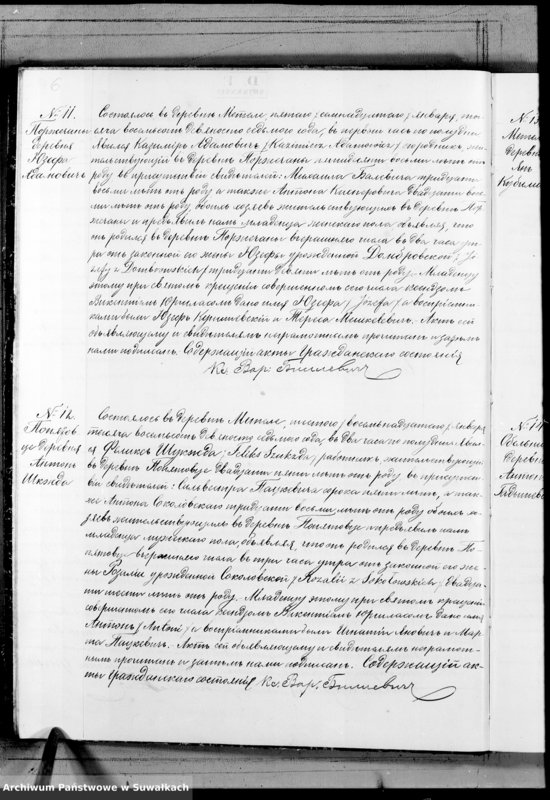 6
№ 11.
Поржечаны
деревня
Юзефа
Адамовичъ
Состоялось въ деревнѣ Метеле, пятаго /семнадцатаго/ января, ты-
сяча восемьсотъ девяносто седьмаго года, въ первомъ часу по полудни
Казимиръ Адамовичъ /Kazimierz Adamowicz/
жительствующій въ деревнѣ Поржечаны пятидесяти восьми лѣтъ отъ
роду въ присутствіи свидѣтелей: Михаила тридцати
восьми лѣтъ отъ роду а также Антона двадцати вось-
ми лѣтъ отъ роду, обоихъ хозяевъ жительствующихъ въ деревнѣ Пор-
жечаны и предъявилъ намъ младенца женскаго пола объявляя, что
онъ родился въ деревнѣ Поржечаны вчерашняго числа въ два часа ут-
ра отъ законной его жены Юзефы урожденной Домбровской /Jó-
zefy z Dombrowskich/ тридцати девяти лѣтъ отъ роду. Младенцу
этому при святомъ крещеніи совершенномъ сего числа ксендзомъ
Викентіемъ Юргиласомъ дано имя Юзефа /Józefa/ а воспріем-
никами были Юзефъ и Тереса Мешкелевичъ. Актъ сей
объявляющему и свидѣтелямъ неграмотнымъ прочитанъ и затѣмъ
нами подписанъ. Содержащій акты Гражданскаго состоянія
Кс. Вар. Билевичъ
№ 12.
Попѣтов-
це деревня
Антонъ
Шкзнда
Состоялось въ деревнѣ Метеле, шестаго /восемнадцатаго/ января
тысяча восемьсотъ девяносто седьмаго года, въ два часа по полудни. Явил-
ся Феликсъ /Feliks/ работникъ жительствующій
въ деревнѣ двадцати пяти лѣтъ отъ роду въ присутст-
віи свидѣтелей: Сильвестра Пацкевича сорока пяти лѣтъ, а так-
же Антона Соколовскаго тридцати восьми лѣтъ отъ роду, обоихъ хо-
зяевъ жительствующихъ въ деревнѣ и предъявилъ намъ
младенца мужескаго пола, объявляя, что онъ родился въ деревнѣ По-
вчерашняго числа въ три часа утра отъ законной его же-
ны Розаліи урожденной Соколовской /Rozalii z Sokołowskich/ двадца-
ти шести лѣтъ отъ роду. Младенцу этому при святомъ крещеніи
совершенномъ сего числа ксендзомъ Викентіемъ Юргиласомъ дано имя
Антонъ /Antoni/ а воспріемниками были Игнатій и Мар-
та Пацкевичъ. Актъ сей объявляющему и свидѣтелямъ неграмот-
нымъ прочитанъ и затѣмъ нами подписанъ. Содержащій ак-
ты Гражданскаго состоянія Кс. Вар. Билевичъ
№ 13
Метеле
деревня
№ 14
деревня
Антонъ
Archiwum Państwowe w Suwałkach